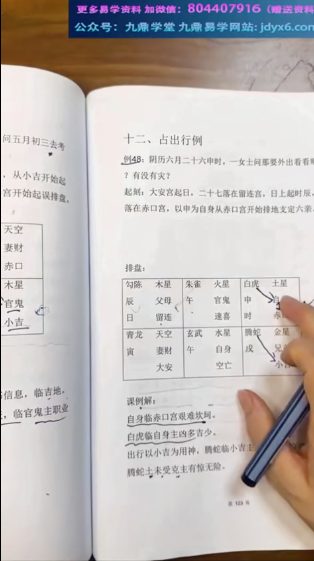 更多易学资料 加微信：804407916（赠送资料
公众号：九鼎学堂 九鼎易学网站：jdyx6.com
问五月初三去考
，从小吉开始起
宫开始起误排盘，
天空
妻财
赤口
木星
官鬼
小吉
信息，临吉地，
，临官鬼主职业
十二、占出行例
例48：阴历六月二十六申时，一女士问那要外出看看
？有没有灾？
起刻：大安宫起日，二十七落在留连宫，日上起时辰，
落在赤口宫，以申为自身从赤口宫开始排地支定六亲
排盘：
勾陈 木星 朱雀 火星 白虎 土星
辰 父母 午 官鬼 申
日 留连 速喜 时
青龙 天空 玄武 水星 腾蛇 金星
寅 妻财 午 自身 戌
大安 空亡 小吉
课例解：
自身临赤口宫艰难坎坷。
白虎临自身主凶多吉少。
出行以小吉为用神，腾蛇临小吉主
腾蛇土未受克主有惊无险。